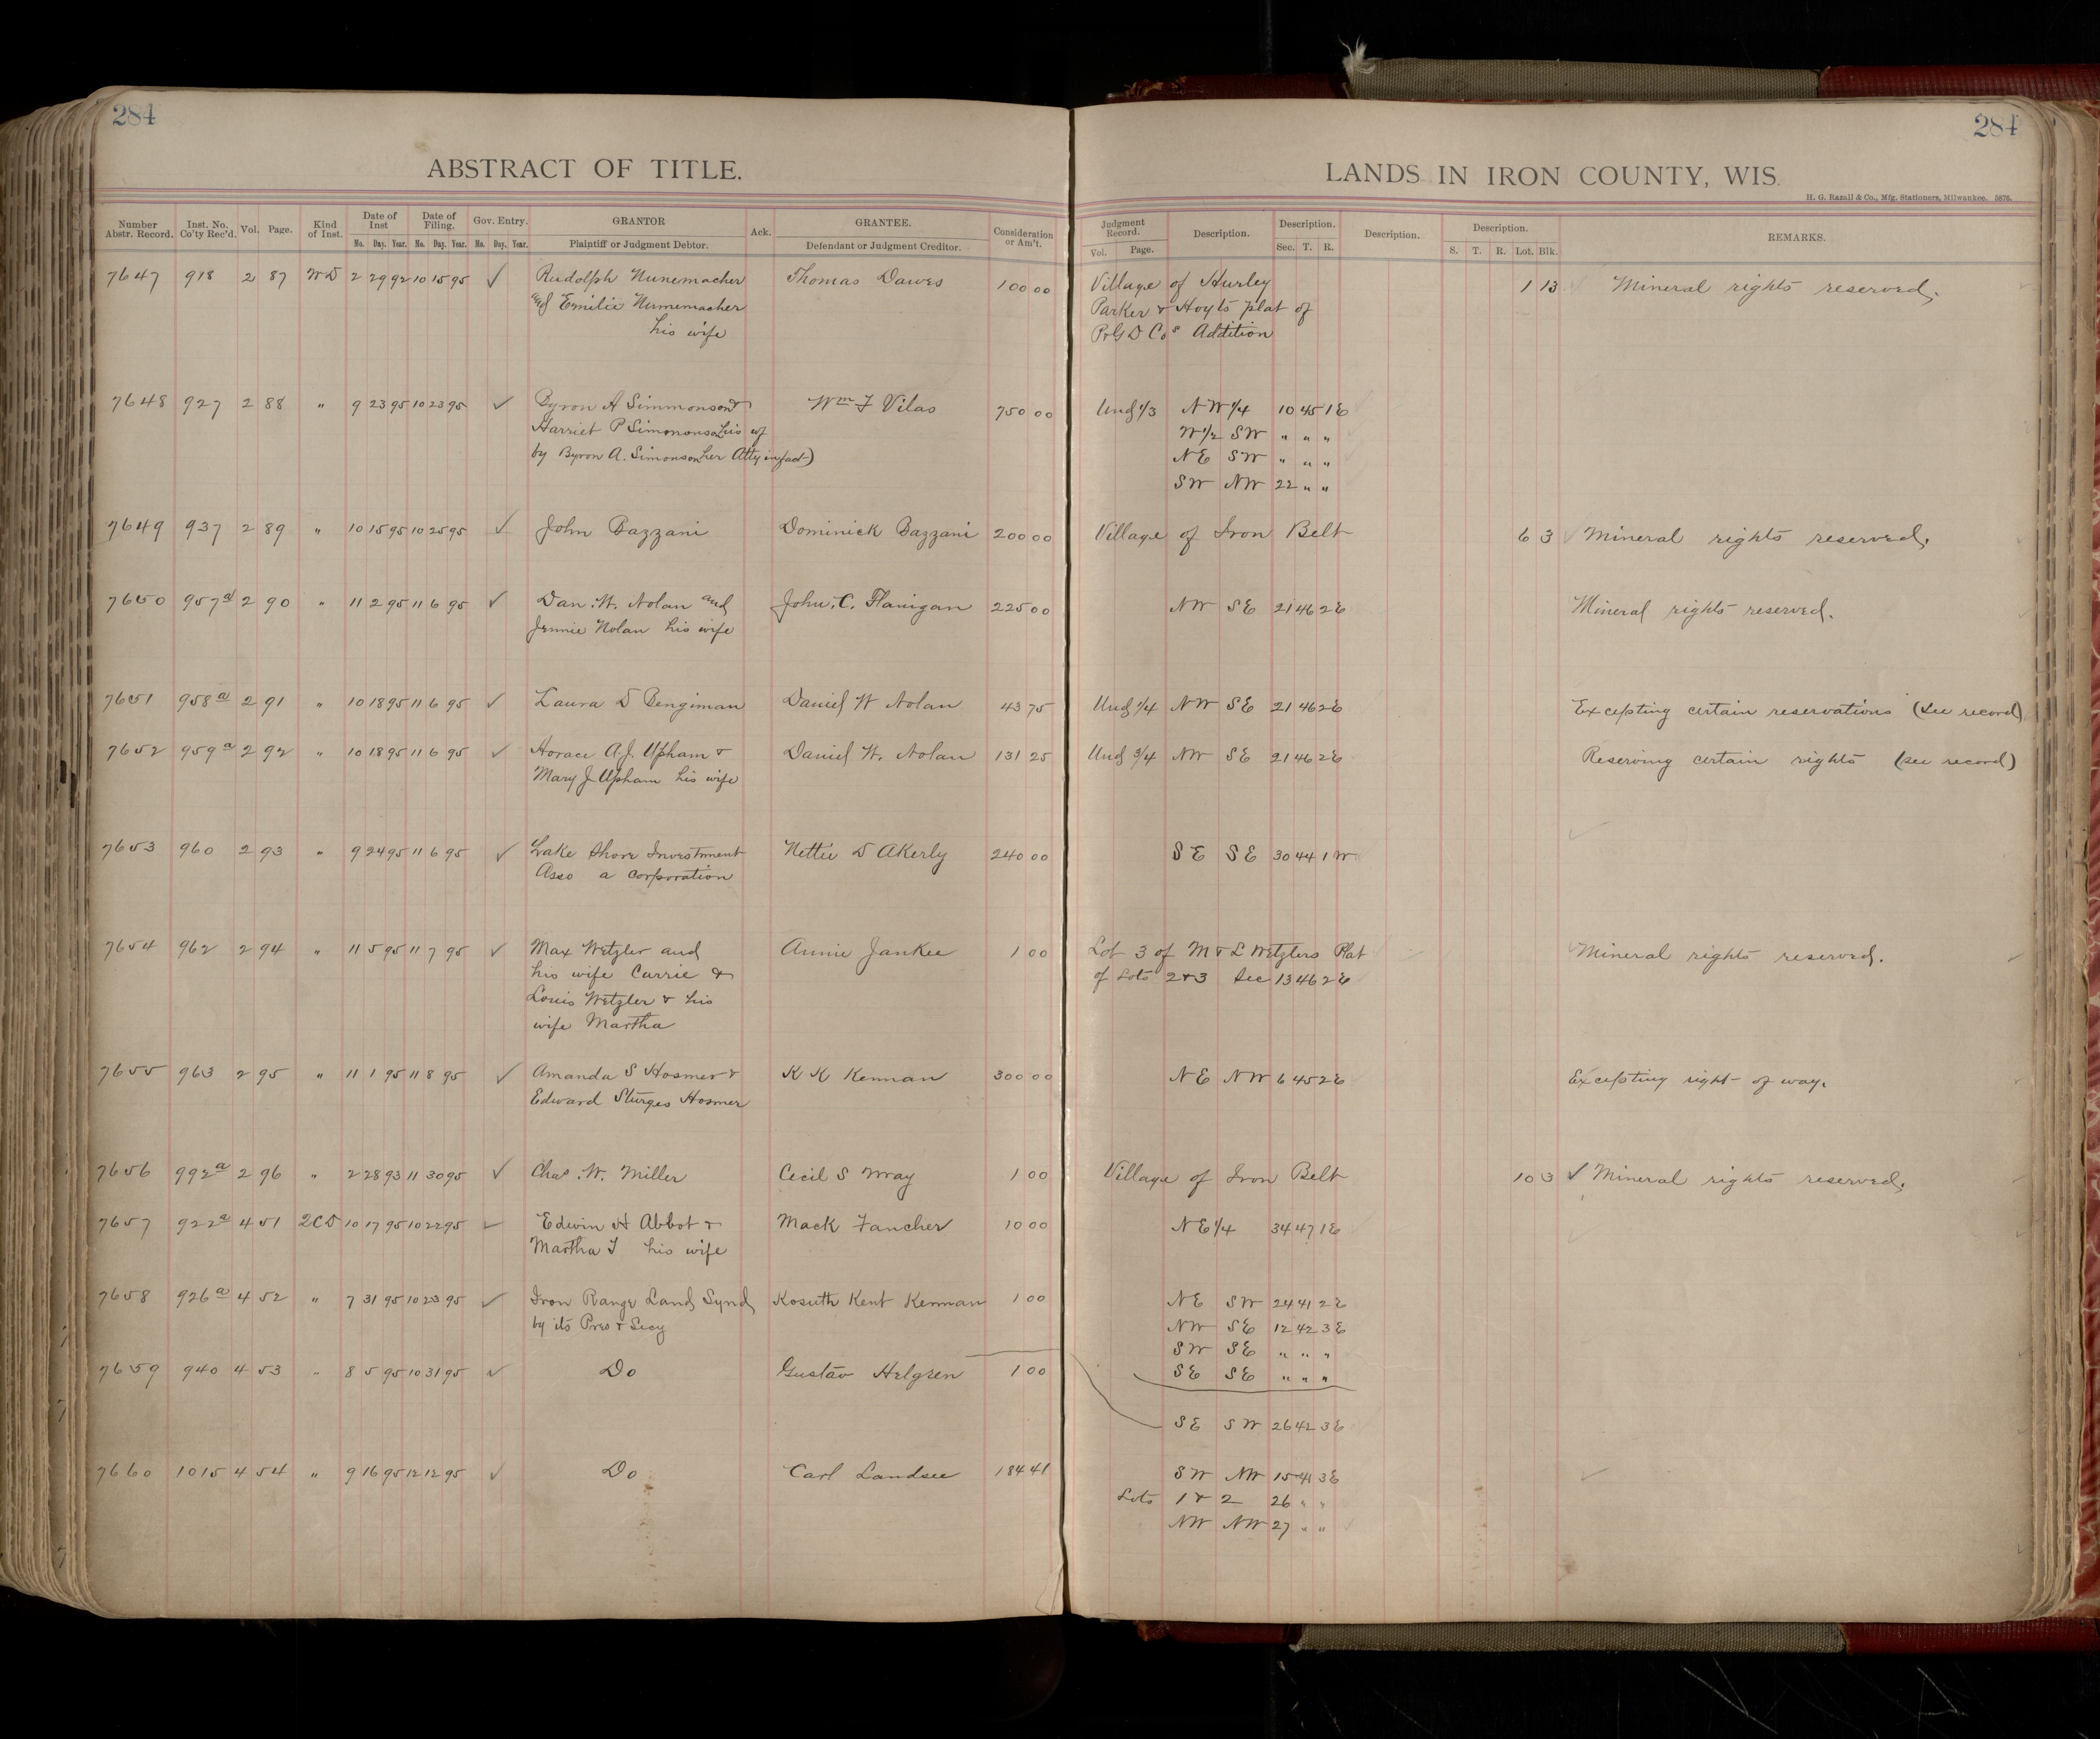 284
284
ABSTRACT OF TITLE.
LANDS IN IRON COUNTY, WIS.
H. G. Razall & Co., Mfg. Stationers, Milwaukee. 5876.
Number Abstr. Record. Inst. No. Co'ty Rec'd. Vol. Page. Kind of Inst. Date of Inst Date of Filing. Gov. Entry. GRANTOR Ack. GRANTEE. Consideration or Am't. Judgment Record. Description. Description. Description. Description. REMARKS.
Mo. Day. Year. Mo. Day. Year. No. Day. Year. Plaintiff or Judgment Debtor. Defendant or Judgment Creditor. Vol. Page. Sec. T. R. S. T. R. Lot. Blk.
7647 918 2 87 WD 2 29 92 10 15 95 ✓ Rudolph Nunemacher Thomas Dawes 100 00 Village of Hurley 1 13 Mineral rights reserved.
and Emilie Nunemacher Parker & Hoyts plat of
his wife Addition
7648 927 2 88 " 9 23 95 10 23 95 ✓ Byron A Simmonson & Wm F Vilas 750 00 Und 1/3 NW 1/4 10 45 1E
Harriet P Simonson his wf W 1/2 SW " " "
by Byron A. Simonson her Atty in fact) NE SW " " "
SW NW 22 " "
7649 937 2 89 " 10 15 95 10 25 95 ✓ John Bazzani Dominick Bazzani 200 00 Village of Iron Belt 6 3 Mineral rights reserved.
7650 957a 2 90 " 11 2 95 11 6 95 ✓ Dan. W. Nolan and John. C. Flanigan 225 00 NW SE 21 46 2E Mineral rights reserved.
Jennie Nolan his wife
7651 958a 2 91 " 10 18 95 11 6 95 ✓ Laura D Bengiman Daniel W Nolan 43 75 Und 1/4 NW SE 21 46 2E Excepting certain reservations (see record)
7652 959a 2 92 " 10 18 95 11 6 95 ✓ Horace A.J. Upham & Daniel W. Nolan 131 25 Und 3/4 NW SE 21 46 2E Reserving certain rights (see record)
Mary J Upham his wife
7653 960 2 93 " 9 24 95 11 6 95 ✓ Lake Shore Investment Nettie D Akerly 240 00 SE SE 30 44 1W
Asso a corporation
7654 962 2 94 " 11 5 95 11 7 95 ✓ Max Wetzler and Annie Jankee 1 00 Lot 3 of M & L Wetzlers Plat Mineral rights reserved.
his wife Carrie & of Lots 2&3 Sec 13 46 2E
Louis Wetzler & his
wife Martha
7655 963 2 95 " 11 1 95 11 8 95 ✓ Amanda S Hosmer & K K Kennan 300 00 NE NW 6 45 2E Excepting right of way.
Edward Sturges Hosmer
7656 992a 2 96 " 2 28 93 11 30 95 ✓ Chas. W. Miller Cecil S Wray 1 00 Village of Iron Belt 10 3 ✓ Mineral rights reserved.
7657 922a 4 51 2CD 10 17 95 10 22 95 ✓ Edwin H Abbot & Mack Fancher 10 00 NE 1/4 34 47 1E
Martha T his wife
7658 926a 4 52 " 7 31 95 10 23 95 ✓ Iron Range Land Synd Kosuth Kent Kennan 1 00 NE SW 24 41 2E
by its Pres & Secy NW SE 12 42 3E
SW SE " " "
7659 940 4 53 " 8 5 95 10 31 95 ✓ Do Gustav Helgren 1 00 SE SE " " "
SE SW 26 42 3E
7660 1015 4 54 " 9 16 95 12 12 95 ✓ Do Carl Landsee 184 41 SW NW 15 41 3E
Lots 1 & 2 26 " "
NW NW 27 " "